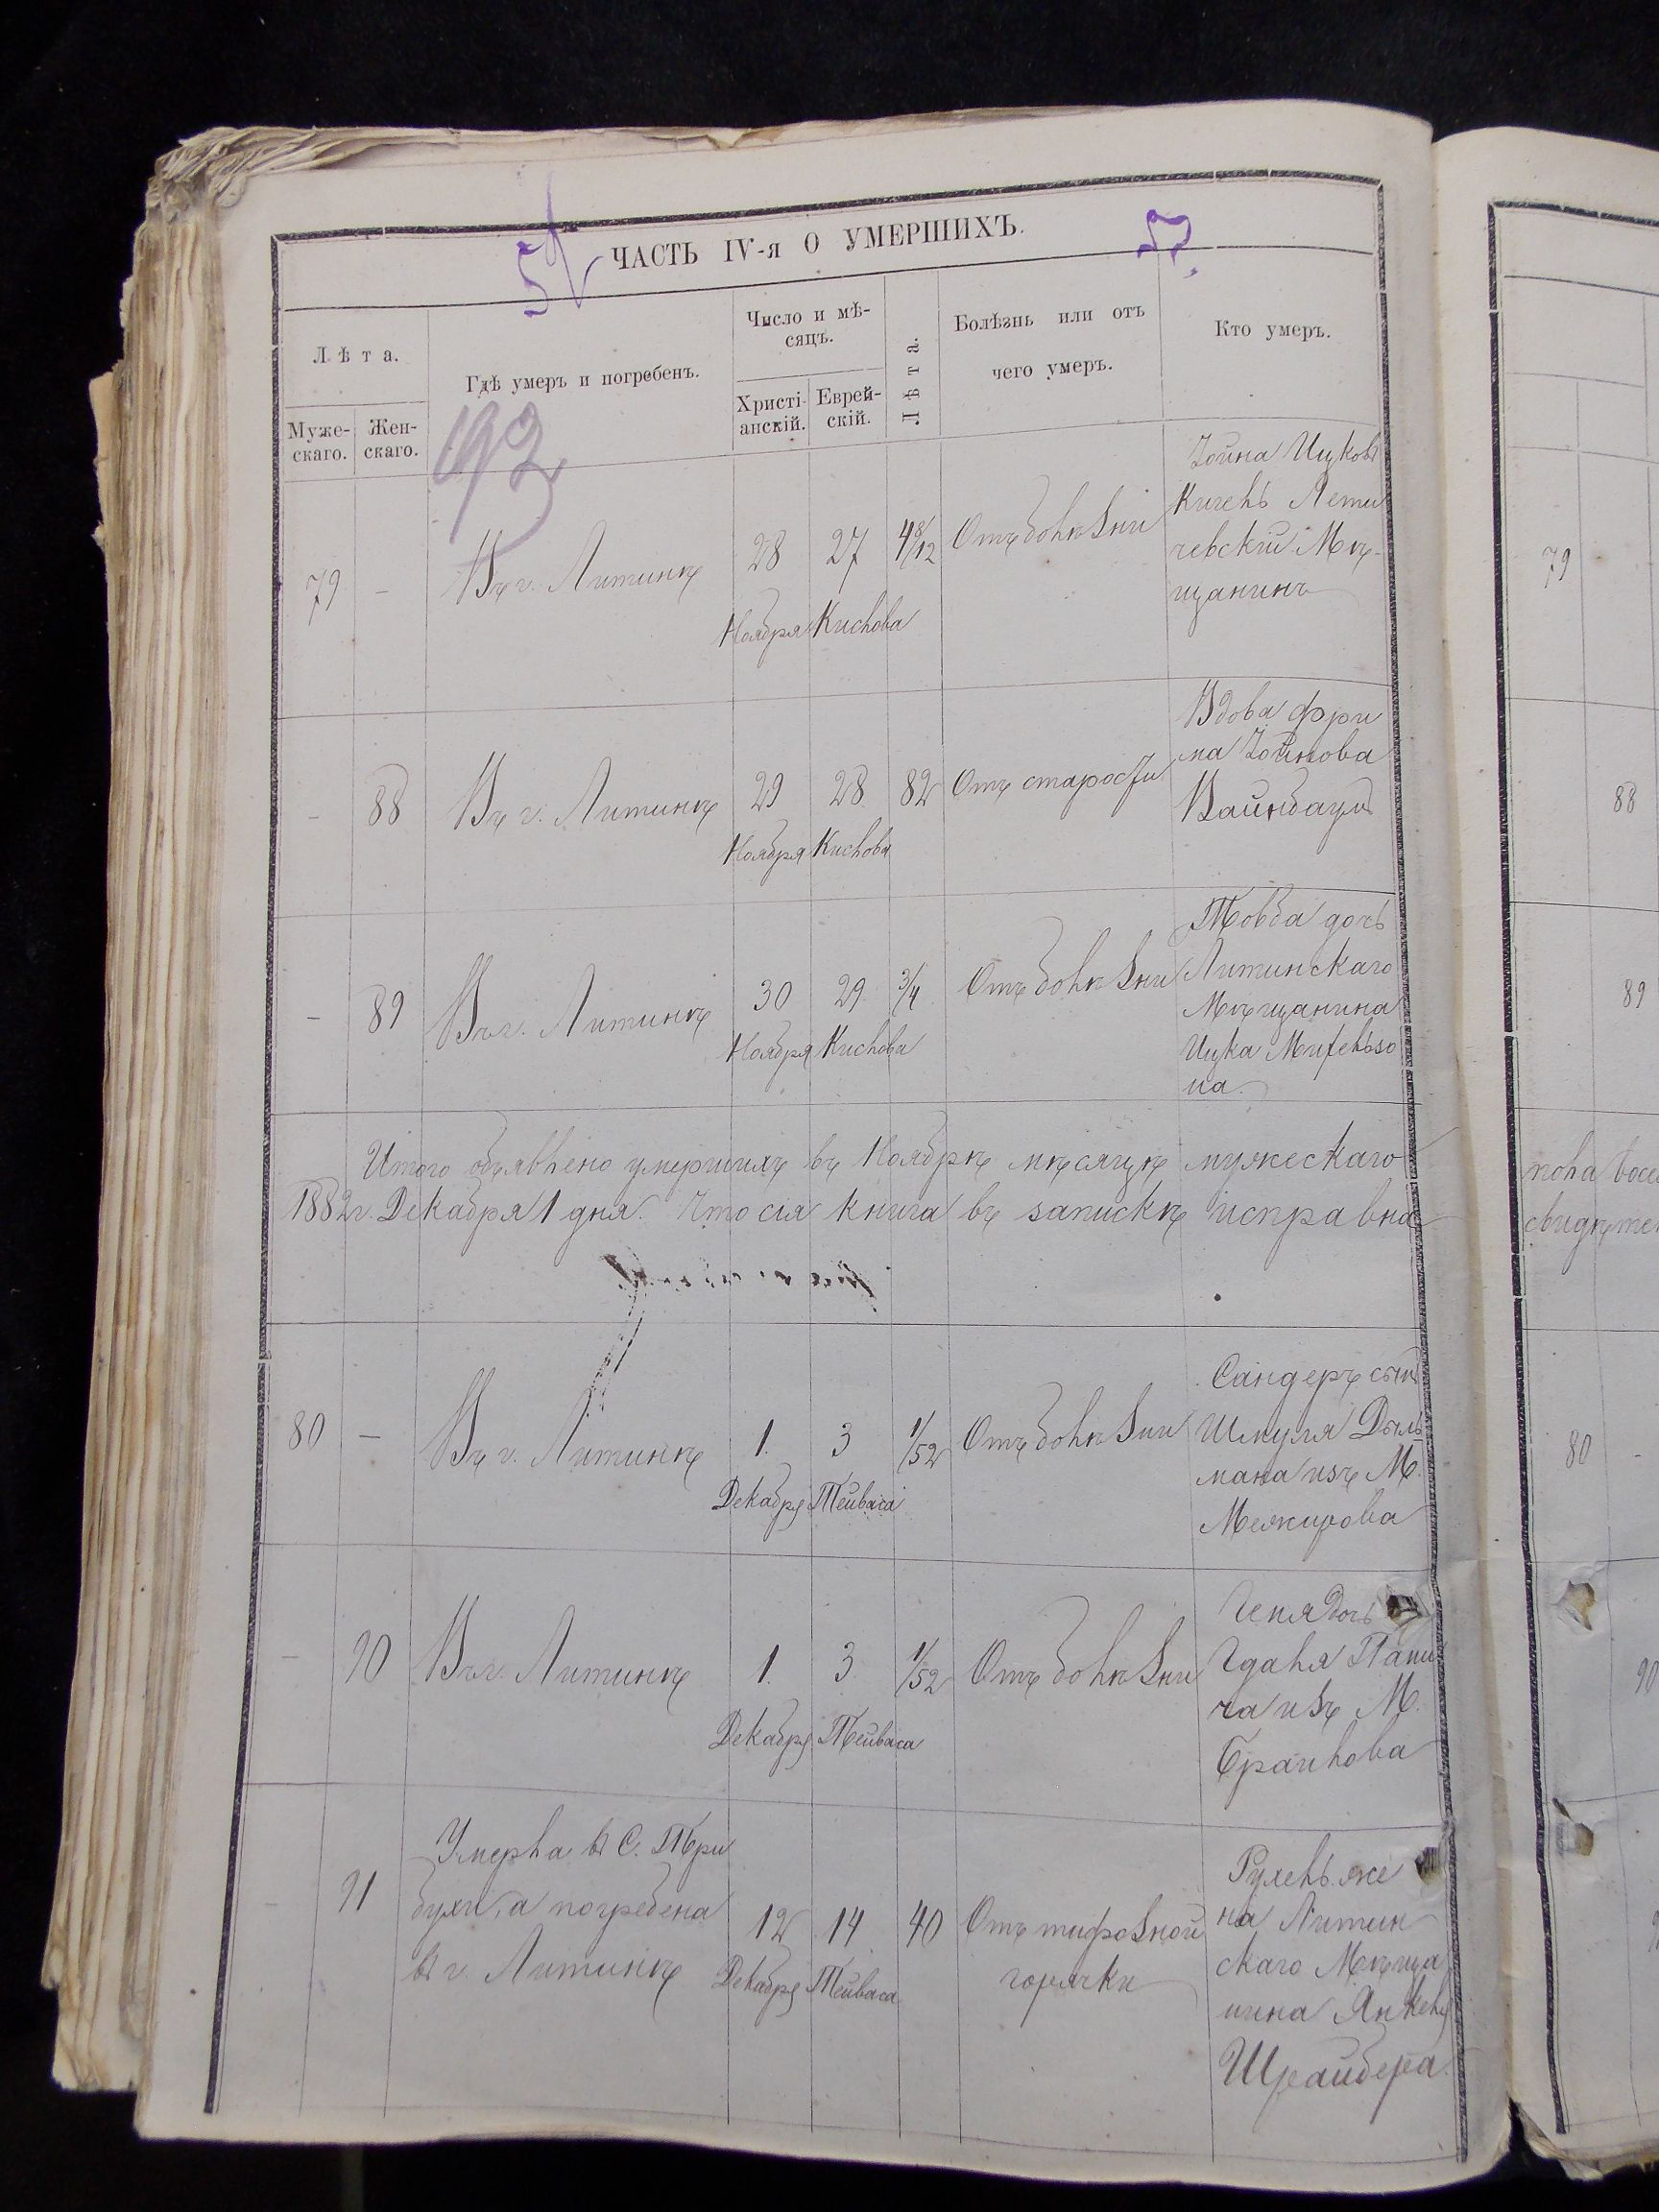 57
ЧАСТЬ IV-я О УМЕРШИХЪ.
Лѣта.
Муже-
скаго.
Жен-
скаго.
Гдѣ умеръ и погребенъ.
Число и мѣ-
сяцъ.
Христі-
анскій.
Еврей-
скій.
Лѣта.
Болѣзнь или отъ
чего умеръ.
Кто умеръ.
192
79
-
Въ г. Литинѣ
28
Ноября
27
Кислова
4 8/12
Отъ болѣзни
Хойна Ицковъ
Кигель Лети
чевскій Мѣ-
щанинъ
-
88
Въ г. Литинѣ
29
Ноября
28
Кислова
82
Отъ старости
Вдова Фри
ма Хоинова
Вайнбаумъ
-
89
Въ г. Литинѣ
30
Ноября
29
Кислова
3/4
Отъ болѣзни
Товба дочь
Литинскаго
Мѣщанина
Ицка Мительзо
на.
Итого объявлено умершихъ въ Ноябрѣ мѣсяцѣ мужескаго
1882 г. Декабря 1 дня. Что сія книга въ запискѣ исправна
80
-
Въ г. Литинѣ
1.
Декабря
3
Тейваса
1/52
Отъ болѣзни
Сандеръ сынъ
Шмуля Дыль
мана изъ М.
Межирова
-
90
Въ г. Литинѣ
1.
Декабря
3
Тейваса
1/52
Отъ болѣзни
Геня дочь
Гдаля Папи
ча изъ М.
Браилова
-
91
Умерла въ С. Три
бухи, а погребена
въ г. Литинѣ
12
Декабря
14
Тейваса
40
Отъ тифозной
горячки
Рухель же
на Литин
скаго Мѣща
нина Янкеля
Шрайбера
79
88
89
80
-
90